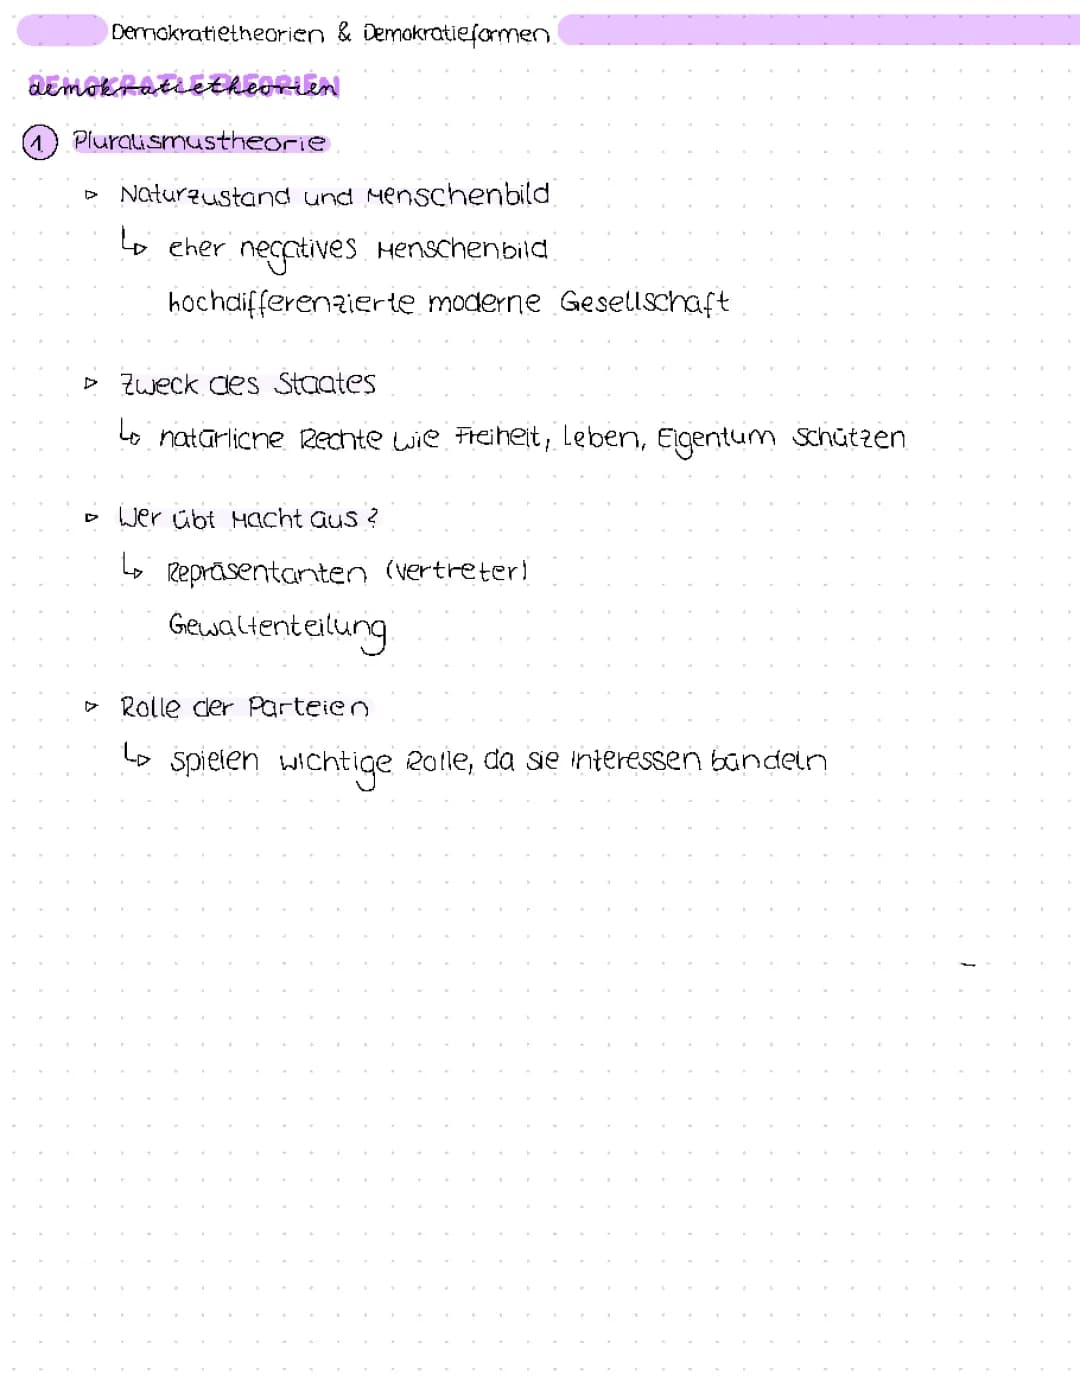 Demokratietheorien & Demokratieformen
DEMOKRATIETHEORIEN
demokratietheorien
1 Pluralismustheorie
▷ Naturzustand und Menschenbild
↳ eher negatives Menschenbild
hochdifferenzierte moderne Gesellschaft
▷ Zweck des Staates
↳ natürliche Rechte wie Freiheit, Leben, Eigentum schützen
▷ Wer übt Macht aus?
↳ Repräsentanten (Vertreter)
Gewaltenteilung
▷ Rolle der Parteien
↳ spielen wichtige Rolle, da sie Interessen bündeln